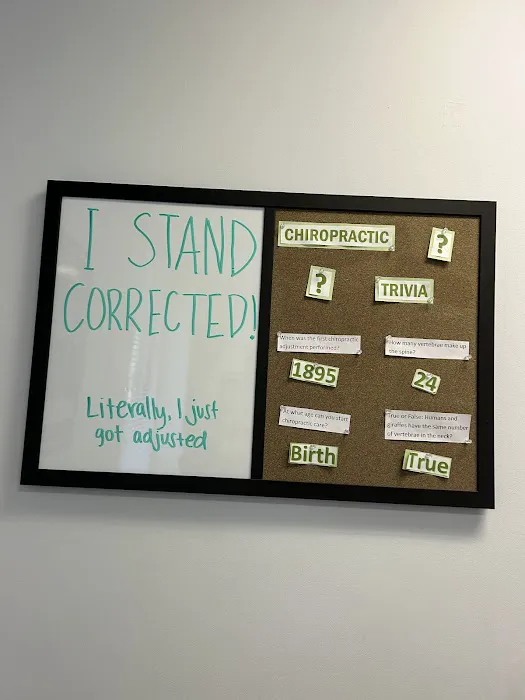 I STAND
CORRECTED!
Literally, I just
got adjusted
CHIROPRACTIC
?
?
TRIVIA
When was the first chiropractic
adjustment performed?
1895
How many vertebrae make up
the spine?
24
At what age can you start
chiropractic care?
Birth
True or False: Humans and
giraffes have the same number
of vertebrae in the neck?
True